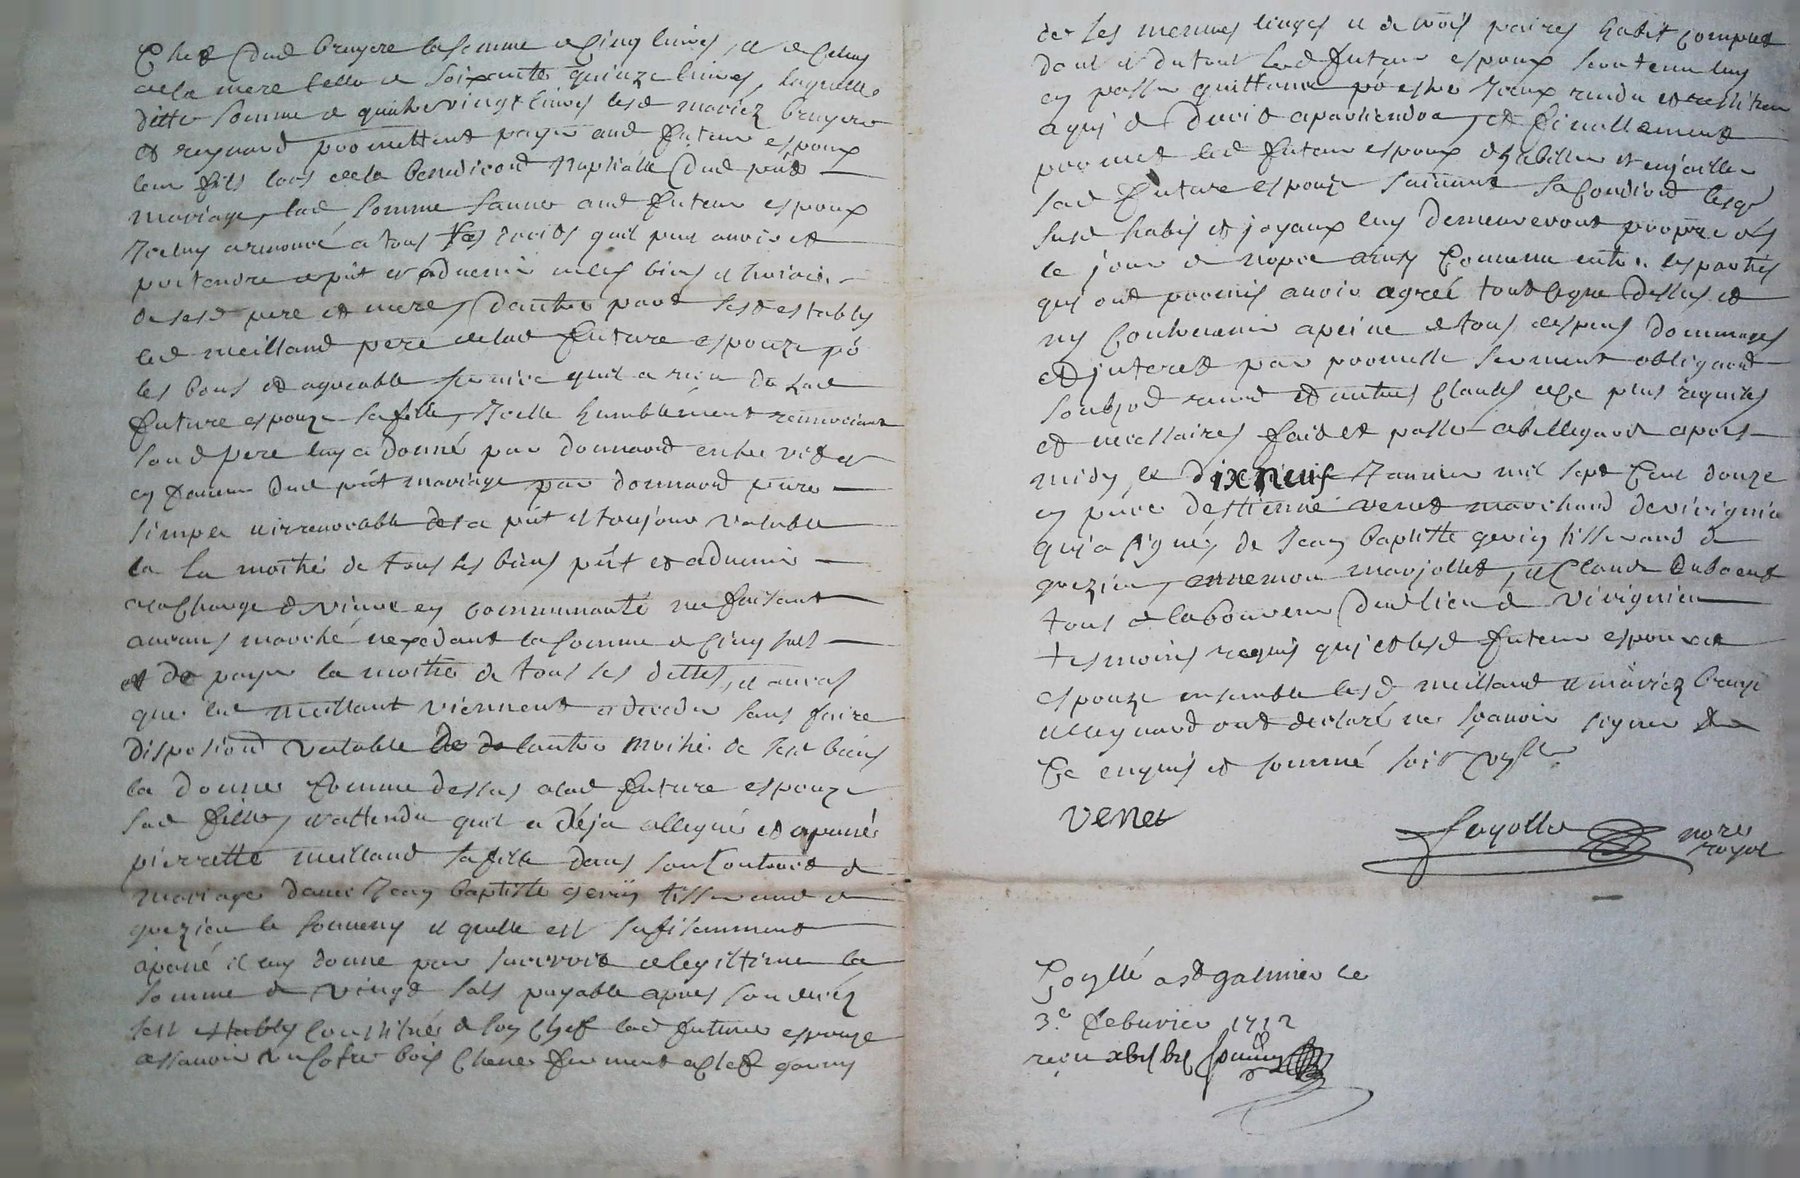 Chef dud bruyere la somme de cinq livres, et de celuy
de la mere celle de soixante quinze livres, laquelle
ditte somme de quatre vingt livres lesd mariez bruyere
et reynaud promettent payer aud futeur espoux
leur fils lors de la benediction nuptialle dud pnt
mariage, lad somme sauver aud futeur espoux
Iceluy a renoncé a tous droits quil peut avoir et
pretendre a pnt et advenir es biens et hoiries
de sesd pere et mere, dautre part sest establys
led meilland pere de lad future espouze po
les bons et agreable service quil a rceu de lad
future espouze sa fille, Icelle humblement remerciant
sond pere luy a donné par donnaond entre vifs et
en faveur dud pnt mariage par donnaond pure
simple irrevocable des a pnt et toujour valable
la moitié de tous ses biens pnt et advenir
a la charge de vivre en communauté ne faisant
aucuns marché nexedant la somme de cinq sols
et de payer la moitié de tous ses dettes, et au cas
que led meillant viennent a deceder sans faire
disposiond valable de lautre moitié de sesd biens
la donne comme dessus a lad future espouze
sad fille, et attendu quil a déja et apané
pierrette meilland sa fille dans son contract de
mariage avec Jean baptiste gerin tisserand de
grezieu le fromental et quelle est sufisamment
apané il luy donne par surcroit de legittime la
somme de vingt sols payable apres son decéz
sest constitué de son chef lad future espouze
assavoir un cofre bois chene fermant a clef garny
de ses menues linges et de trois paires habit compris
dont et du tout led futeur espoux sera tenu luy
en passer quittance po estre Iceux rendu et restitue
a quj de droit apartiendra, et finallement
promet led futeur espoux dhabiller et enjoailler
sad future espouze suivant sa condiond lesq
susd habis et joyaux luy demeureront propre des
le jour de nopce ainsy convenu entre les parties
quj ont promis avoir agréé tout ce que dessus et
ny contrevenir a peine de tous despens dommages
et jnterest par promesse serment obligaond
soubzod renond et autres clauses de ce plus requises
et necessaires fait et passé a bellegarde apres
midy le dix neuf Janvier mil sept cent douze
en pnce destienne venet marchand de virignieu
quj a signé, de Jean baptiste gerin tisserand de
grezieu, ennemon marjollet, et Claude duboeuf
tous de laboureur dud lieu de virignieu
tesmoins requis quj et lesd futeur espoux et
espouze ensemble lesd meilland et mariez bruyere
et reynaud ont declaré ne sçavoir signer de
ce enquis et sommé soit conllé
venet
fayolle nore royal
Conllé a st galmier le
3e febvrier 1712
receu